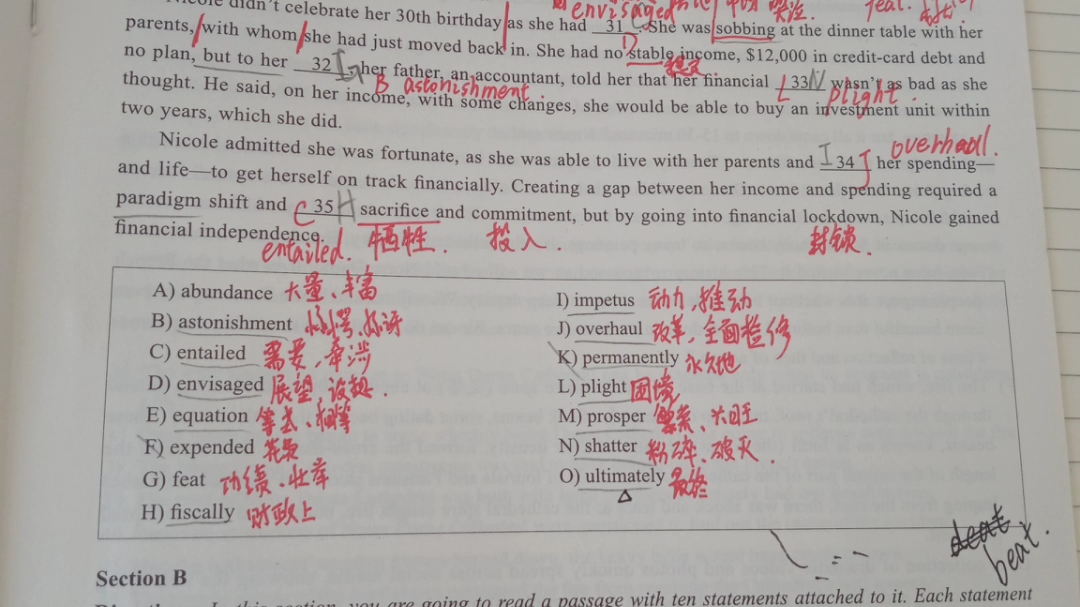 envisaged
didn't celebrate her 30th birthday as she had 31. She was sobbing at the dinner table with her
parents, with whom she had just moved back in. She had no stable income, $12,000 in credit-card debt and
no plan, but to her 32 her father, an accountant, told her that her financial 33 wasn't as bad as she
B astonishment
L plight
thought. He said, on her income, with some changes, she would be able to buy an investment unit within
two years, which she did.
overhaul.
Nicole admitted she was fortunate, as she was able to live with her parents and 34 J her spending—
and life—to get herself on track financially. Creating a gap between her income and spending required a
paradigm shift and C 35 H sacrifice and commitment, but by going into financial lockdown, Nicole gained
financial independence.
entailed. 牺牲. 投入. 封锁.
A) abundance 大量、丰富
B) astonishment 惊愕、惊讶
C) entailed 需要、牵涉
D) envisaged 展望、设想.
E) equation 等式、相等
F) expended 花费
G) feat 功绩、壮举
H) fiscally 财政上
I) impetus 动力、推动
J) overhaul 改革,全面检修
K) permanently 永久地
L) plight 困境
M) prosper 繁荣、兴旺
N) shatter 粉碎、破灭.
O) ultimately 最终
beat.
Section B
In this section, you are going to read a passage with ten statements attached to it. Each statement